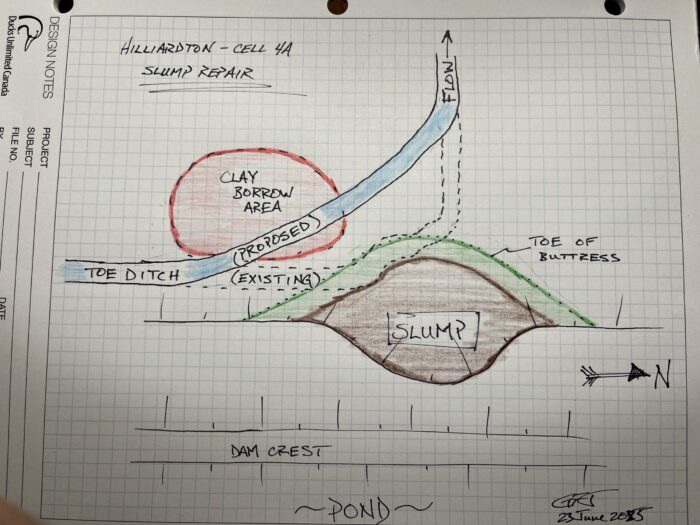 HILLIARDTON - CELL 4A
SLUMP REPAIR
FLOW
CLAY
BORROW
AREA
(PROPOSED)
TOE DITCH
(EXISTING)
TOE OF
BUTTRESS
SLUMP
N
DAM CREST
~POND~
23 June 
DESIGN NOTES
Ducks Unlimited Canada
PROJECT
SUBJECT
FILE NO.
BY
DATE